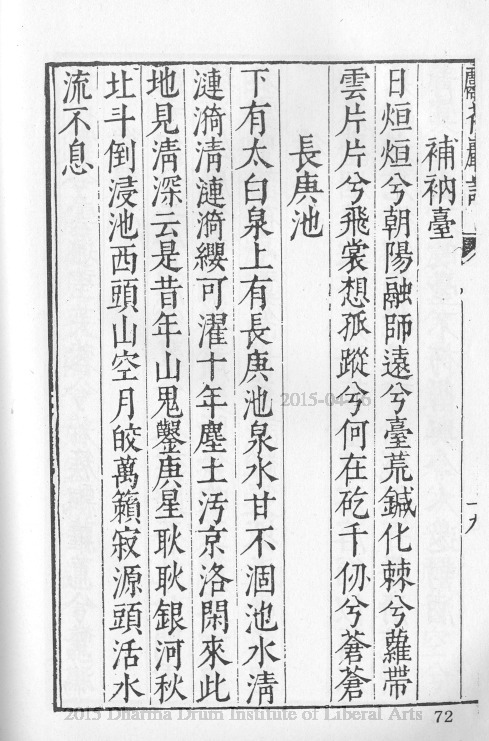 補衲臺
日烜烜兮朝陽融師遠兮臺荒鍼化棘兮蘿帶
雲片片兮飛裳想孤蹤兮何在矻千仞兮蒼蒼
長庚池
下有太白泉上有長庚池泉水甘不涸池水清
漣漪清漣漪纓可濯十年塵土汚京洛閑來此
地見清深云是昔年山鬼鑿庚星耿耿銀河秋
北斗倒浸池西頭山空月皎萬籟寂源頭活水
流不息
十九
72
2015-04-16
2015 Dharma Drum Institute of Liberal Arts